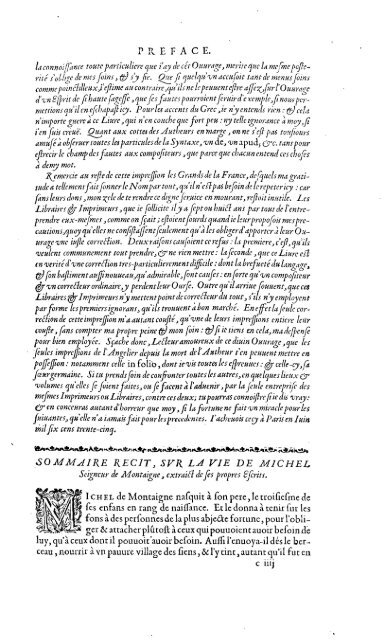 PREFACE.
la connoissance toute particuliere que i'ay de cét Ouurage, merite que la mesme poste-
rité s'oblige de mes soins, & s'y fie. Que si quelqu'vn accusoit tant de menus soins
comme pointilleux, i'estime au contraire, qu'ils ne le peuuent estre assez, sur l'Ouurage
d'vn Esprit de si haute sagesse, que ses fautes pourroient seruir d'exemple, si nous per-
mettions qu'il en eschapast icy. Pour les accents du Grec, ie n'y entends rien: & cela
n'importe guere à ce Liure, qui n'en couche que fort peu: ny telle ignorance à moy, si
i'en suis creuë. Quant aux cottes des Autheurs en marge, on ne s'est pas tousiours
amusé à obseruer toutes les particules de la Syntaxe, vn de, vn apud, &c. tant pour
estrecir le champ des fautes aux compositeurs, que parce que chacun entend ces choses
à demy mot.
Remercie au reste de cette impression les Grands de la France, desquels ma grati-
tude a tellement fait sonner le Nom par tout, qu'il n'est pas besoin de le repeter icy: car
sans leurs dons, mon zele de te rendre ce digne seruice en mourant, restoit inutile. Les
Libraires & Imprimeurs, que ie sollicite il y a sept ou huict ans par tout de l'entre-
prendre eux-mesmes, comme on sçait; estoient sourds quand ie leur proposois mes pre-
cautions, quoy qu'elles ne consistassent seulement qu'à les obliger d'apporter à leur Ou-
urage vne iuste correction. Deux raisons causoient ce refus: la premiere, c'est, qu'ils
veulent communement tout prendre, & ne rien mettre: la seconde, que ce Liure est
en verité d'vne correction tres-particulierement difficile: dont la brefueté du langage,
& son bastiment aussi nouueau, qu'admirable, sont causes: en sorte qu'vn compositeur
& vn correcteur ordinaire, y perdent leur Ourse. Outre qu'il arriue souuent, que ces
Libraires & Imprimeurs n'y mettent point de correcteur du tout, s'ils n'y employent
par forme les premiers ignorans, qu'ils trouuent à bon marché. En effet la seule cor-
rection de cette impression m'a autant cousté, qu'vne de leurs impressions entiere leur
couste, sans compter ma propre peine & mon soin: & si ie tiens en cela, ma despense
pour bien employée. Sçache donc, Lecteur amoureux de ce diuin Ouurage, que les
seules impressions de l'Angelier depuis la mort de l'Autheur t'en peuuent mettre en
possession: notamment celle in folio, dont ie vis toutes les espreuues: & celle-cy, sa
sœur germaine. Si tu prends soin de confronter toutes les autres, en quelques lieux &
volumes qu'elles se soient faites, ou se facent à l'aduenir, par la seule entreprise des
mesmes Imprimeurs ou Libraires, contre ces deux; tu pourras connoistre si ie dis vray:
& en conceuras autant d'horreur que moy, si la fortune ne fait vn miracle pour les
suiuantes, qu'elle n'a iamais fait pour les precedentes. I'acheuois cecy à Paris en Iuin
mil six cens trente-cinq.
SOMMAIRE RECIT, SVR LA VIE DE MICHEL
Seigneur de Montaigne, extraict de ses propres Escrits.
MICHEL de Montaigne nasquit à son pere, le troisiesme de
ses enfans en rang de naissance. Et le donna à tenir sur les
fons à des personnes de la plus abjecte fortune, pour l'obli-
ger & attacher plustost à ceux qui pouuoient auoir besoin de
luy, qu'à ceux dont il pouuoit auoir besoin. Aussi l'enuoya-il dés le ber-
ceau, nourrir à vn pauure village des siens, & l'y tint, autant qu'il fut en
c iiij